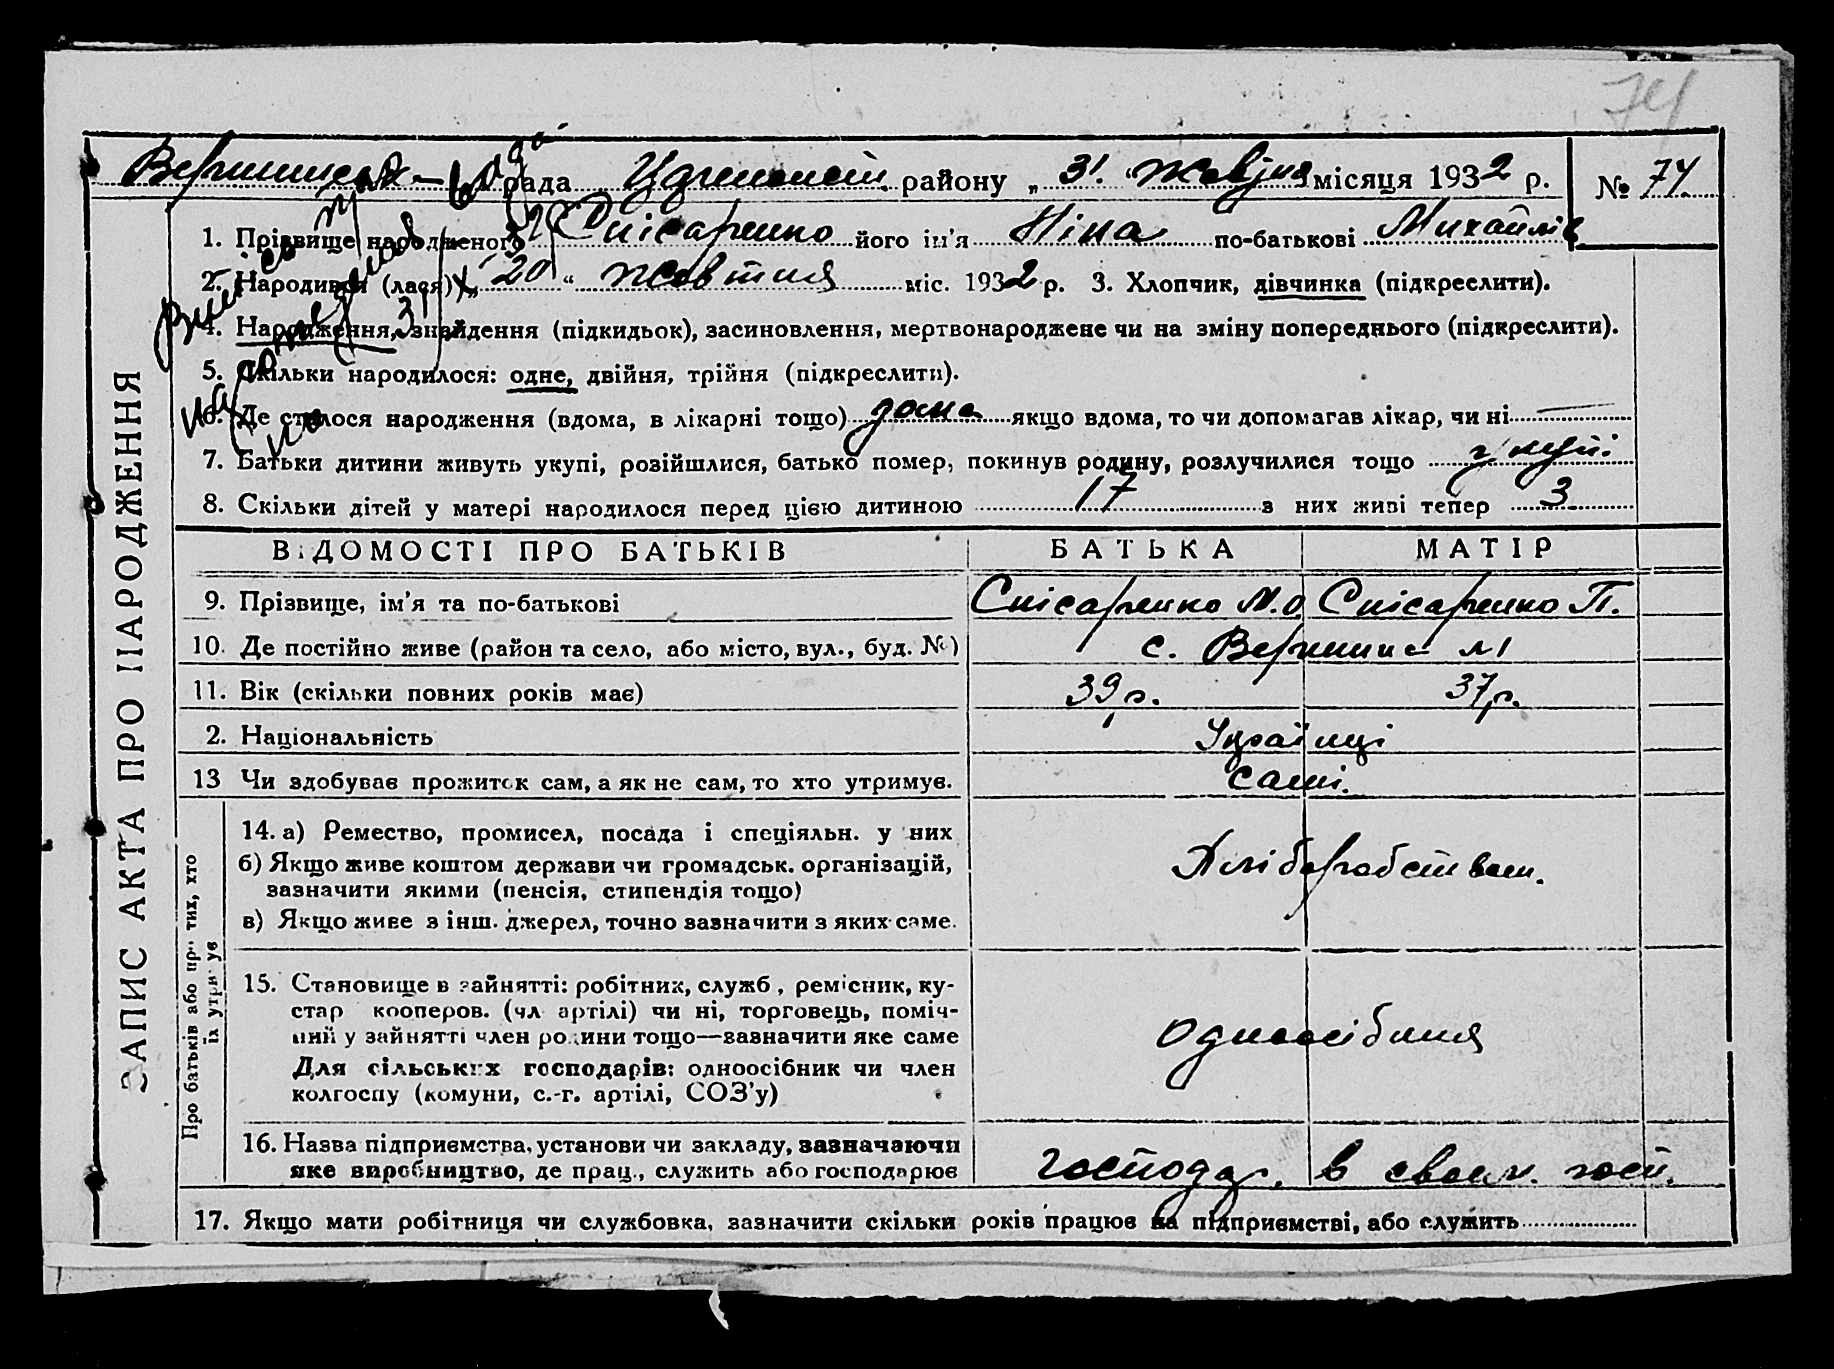 74
рада району „ 31 “ місяця 1932 р. № 74
1. Прізвище народженого Снісаренко його ім'я Ніна по-батькові Михайлів
2. Народився (лася) „ 20 “ жовтня міс. 1932 р. 3. Хлопчик, дівчинка (підкреслити).
4. Народження, знайдення (підкидьок), засиновлення, мертвонароджене чи на зміну попереднього (підкреслити).
5. Скільки народилося: одне, двійня, трійня (підкреслити).
6. Де сталося народження (вдома, в лікарні тощо) дома якщо вдома, то чи допомагав лікар, чи ні —
7. Батьки дитини живуть укупі, розійшлися, батько помер, покинув родину, розлучилися тощо
8. Скільки дітей у матері народилося перед цією дитиною 17 з них живі тепер 3
ЗАПИС АКТА ПРО НАРОДЖЕННЯ
ВІДОМОСТІ ПРО БАТЬКІВ БАТЬКА МАТІР
9. Прізвище, ім'я та по-батькові Снісаренко М.О. Снісаренко П.
10. Де постійно живе (район та село, або місто, вул., буд. №) с.
11. Вік (скільки повних років має) 39 р. 37 р.
2. Національність Українці
13 Чи здобуває прожиток сам, а як не сам, то хто утримує. самі.
Про батьків або про тих, хто їх утримує
14. а) Ремество, промисел, посада і спеціяльн. у них
б) Якщо живе коштом держави чи громадськ. організацій,
зазначити якими (пенсія, стипендія тощо)
Хліборобством.
в) Якщо живе з інш. джерел, точно зазначити з яких саме.
15. Становище в зайнятті: робітник, служб., ремісник, ку-
стар кооперов. (чл. артілі) чи ні, торговець, поміч-
ний у зайнятті член родини тощо—зазначити яке саме
одноосібния
Для сільських господарів: одноосібник чи член
колгоспу (комуни, с.-г. артілі, СОЗ'у)
16. Назва підприємства, установи чи закладу, зазначаючи
яке виробництво, де прац., служить або господарює господар. в своем. госп.
17. Якщо мати робітниця чи службовка, зазначити скільки років працює на підприємстві, або служить